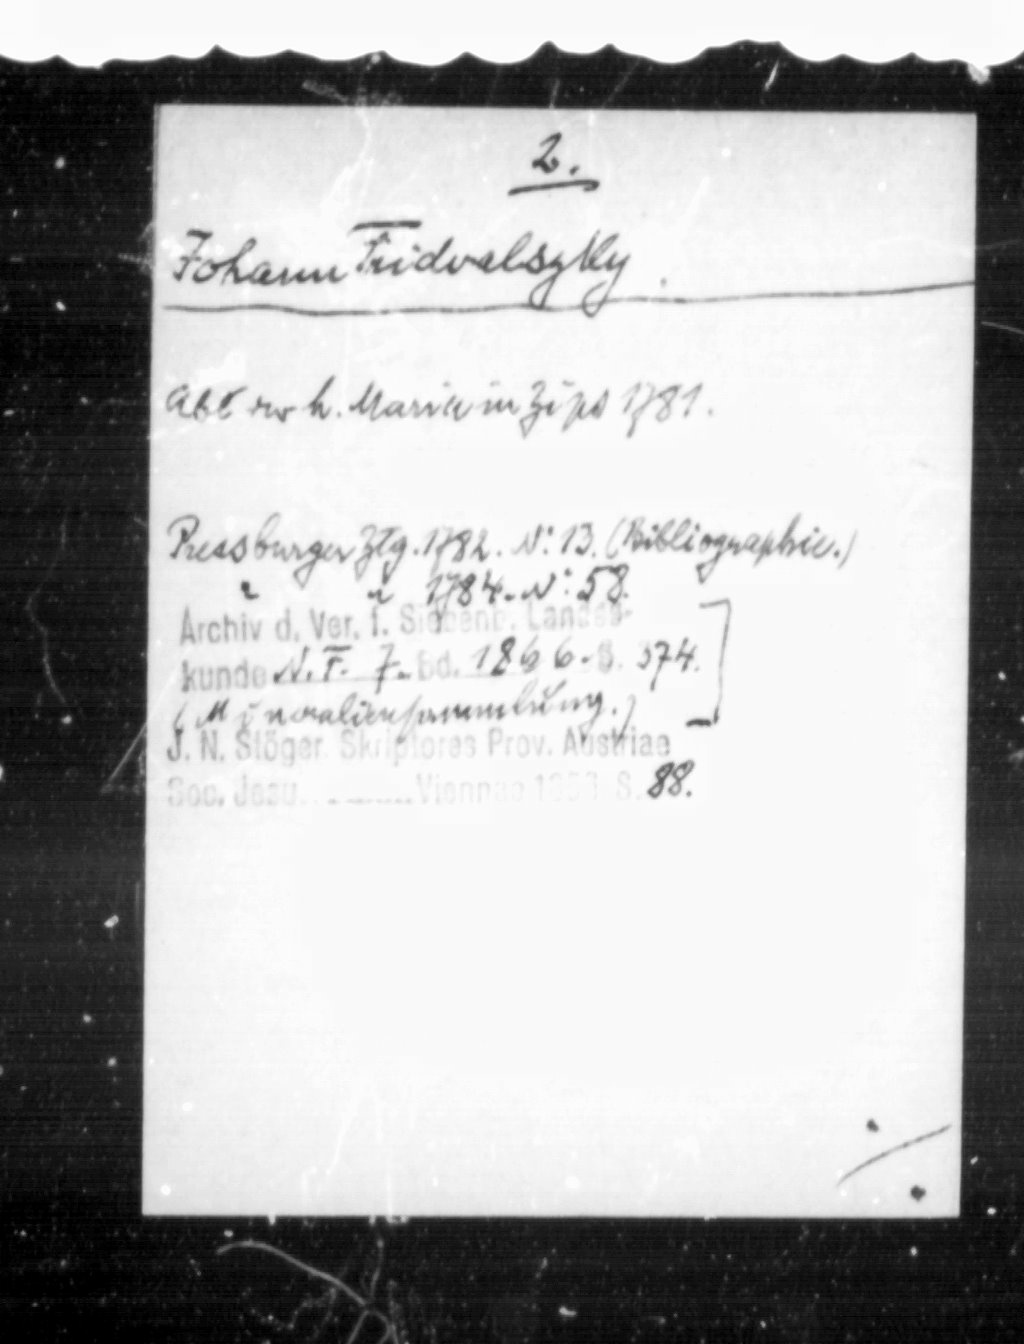 2.
Johann Fridvalszky.
Abt der h. Maria in Zips 1781.
Pressburger Ztg. 1782. N: 13. (Bibliographie.)
" " 1784. N: 58.
Archiv d. Ver. f. Siebenb. Landes-
kunde N. F. 7. Bd. 1866. S. 374.
(Mineraliensammlung.)
J. N. Stöger. Skriptores Prov. Austriae
Soc. Jesu. Viennae 1856 S. 88.